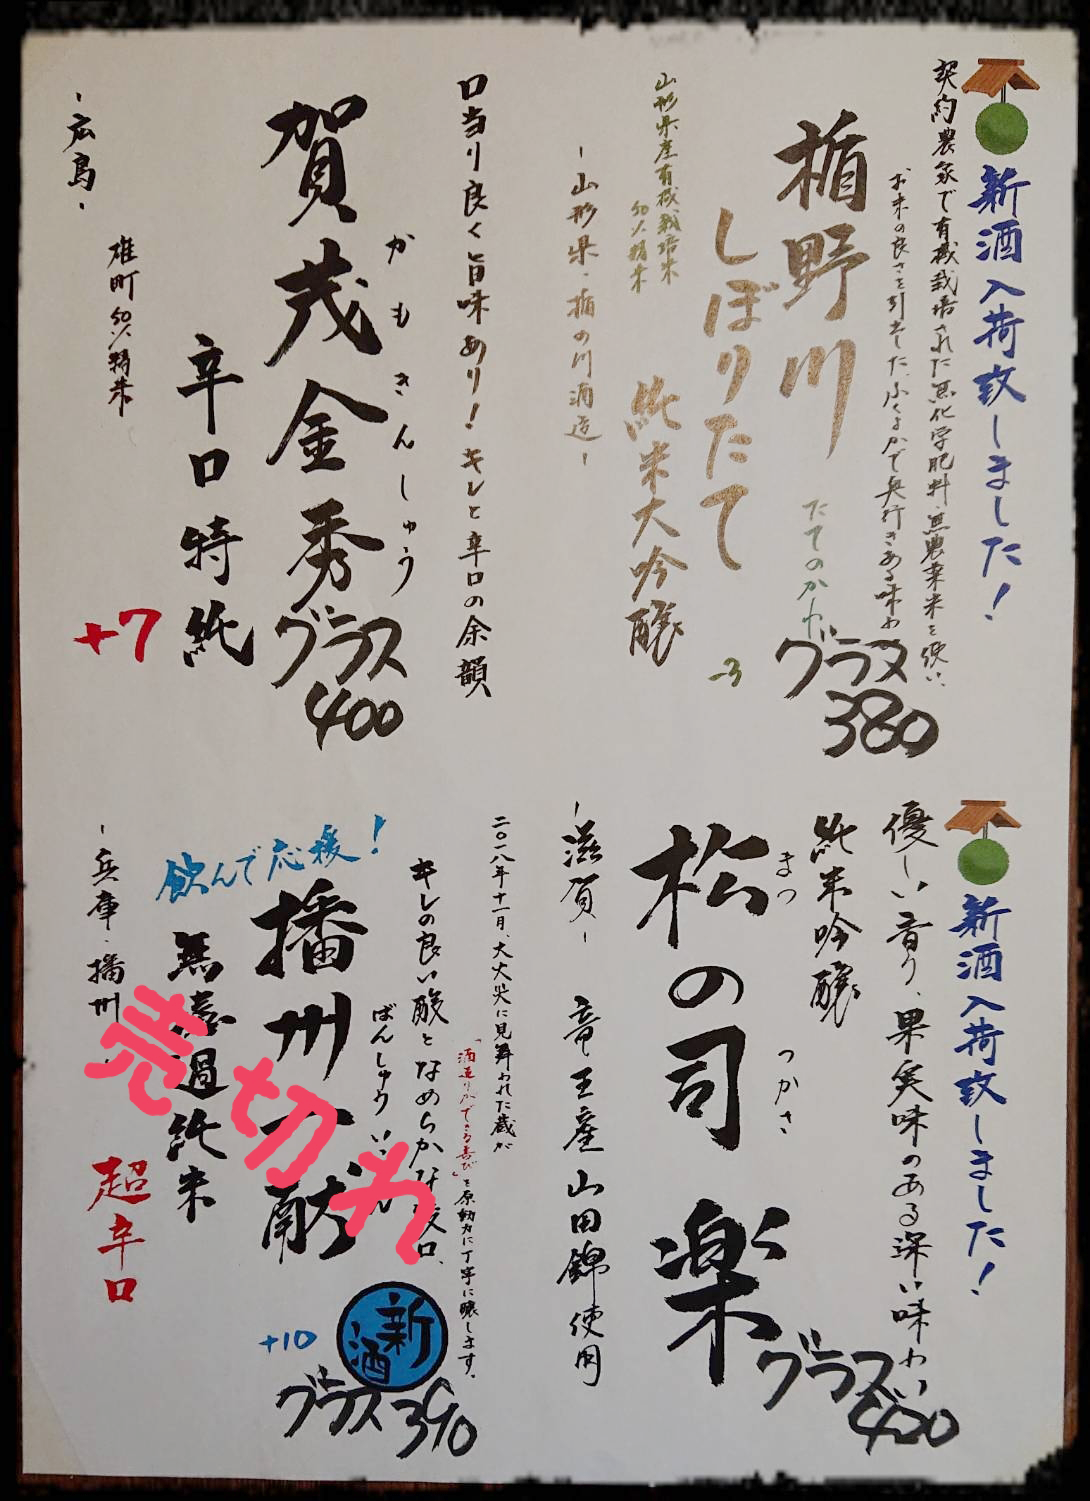 新酒入荷致しました！
契約農家で有機栽培された無化学肥料・無農薬米を使い、
お米の良さを引出した、ふくよかで奥行きある味わい
楯野川
たてのかわ
しぼりたて
純米大吟醸
グラス
380
-3
山形県産有機栽培米
50%精米
-山形県・楯の川酒造-
口当り良く旨味あり！キレと辛口の余韻
賀茂金秀
かもきんしゅう
辛口特純
グラス
400
+7
雄町50%精米
-広島-
新酒入荷致しました！
優しい香り、果実味のある深い味わい
純米吟醸
松の司 楽
まつ
つかさ
グラス
450
-滋賀- 竜王産山田錦使用
二〇一八年十一月、大火災に見舞われた蔵が
「酒造りができる喜び」を原動力に丁寧に醸します。
キレの良い酸となめらかな
口、
飲んで応援！
播州一献
ばんしゅう
無濾過純米
超辛口
新酒
+10
グラス390
-兵庫・播州
売切れ